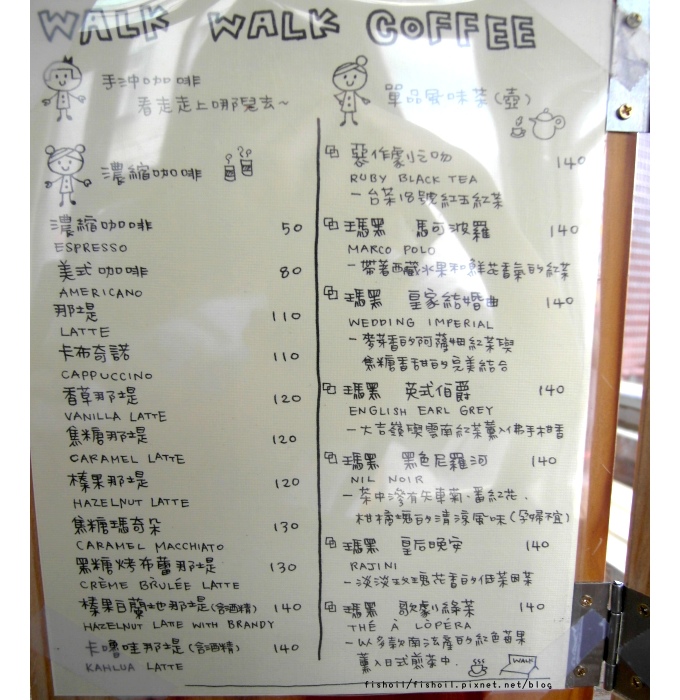 WALK WALK COFFEE
手沖咖啡
看走走上哪兒去~
濃縮咖啡
濃縮咖啡 50
ESPRESSO
美式咖啡 80
AMERICANO
那堤 110
LATTE
卡布奇諾 110
CAPPUCCINO
香草那堤 120
VANILLA LATTE
焦糖那堤 120
CARAMEL LATTE
榛果那堤 120
HAZELNUT LATTE
焦糖瑪奇朵 130
CARAMEL MACCHIATO
黑糖烤布蕾那堤 130
CRÈME BRÛLÉE LATTE
榛果白蘭地那堤(含酒精) 140
HAZELNUT LATTE WITH BRANDY
卡嚕哇那堤(含酒精) 140
KAHLUA LATTE
單品風味茶(壺)
惡作劇之吻 140
RUBY BLACK TEA
-台茶18號紅玉紅茶
瑪黑 馬可波羅 140
MARCO POLO
-帶著西藏水果和鮮花香氣的紅茶
瑪黑 皇家結婚曲 140
WEDDING IMPERIAL
-麥芽香的阿薩姆紅茶與
焦糖香甜的完美結合
瑪黑 英式伯爵 140
ENGLISH EARL GREY
-大吉嶺與雲南紅茶薰入佛手柑香
瑪黑 黑色尼羅河 140
NIL NOIR
-茶中滲有矢車菊、番紅花、
柑橘塊的清涼風味(孕婦宜)
瑪黑 皇后晚安 140
RAJINI
-淡淡玫瑰花香的低茶因茶
瑪黑 歌劇綠茶 140
THÉ À L'OPÉRA
-以多款南法產的紅色莓果
薰入日式煎茶中.
WALK
fishoil/fishoil.pixnet.net/blog